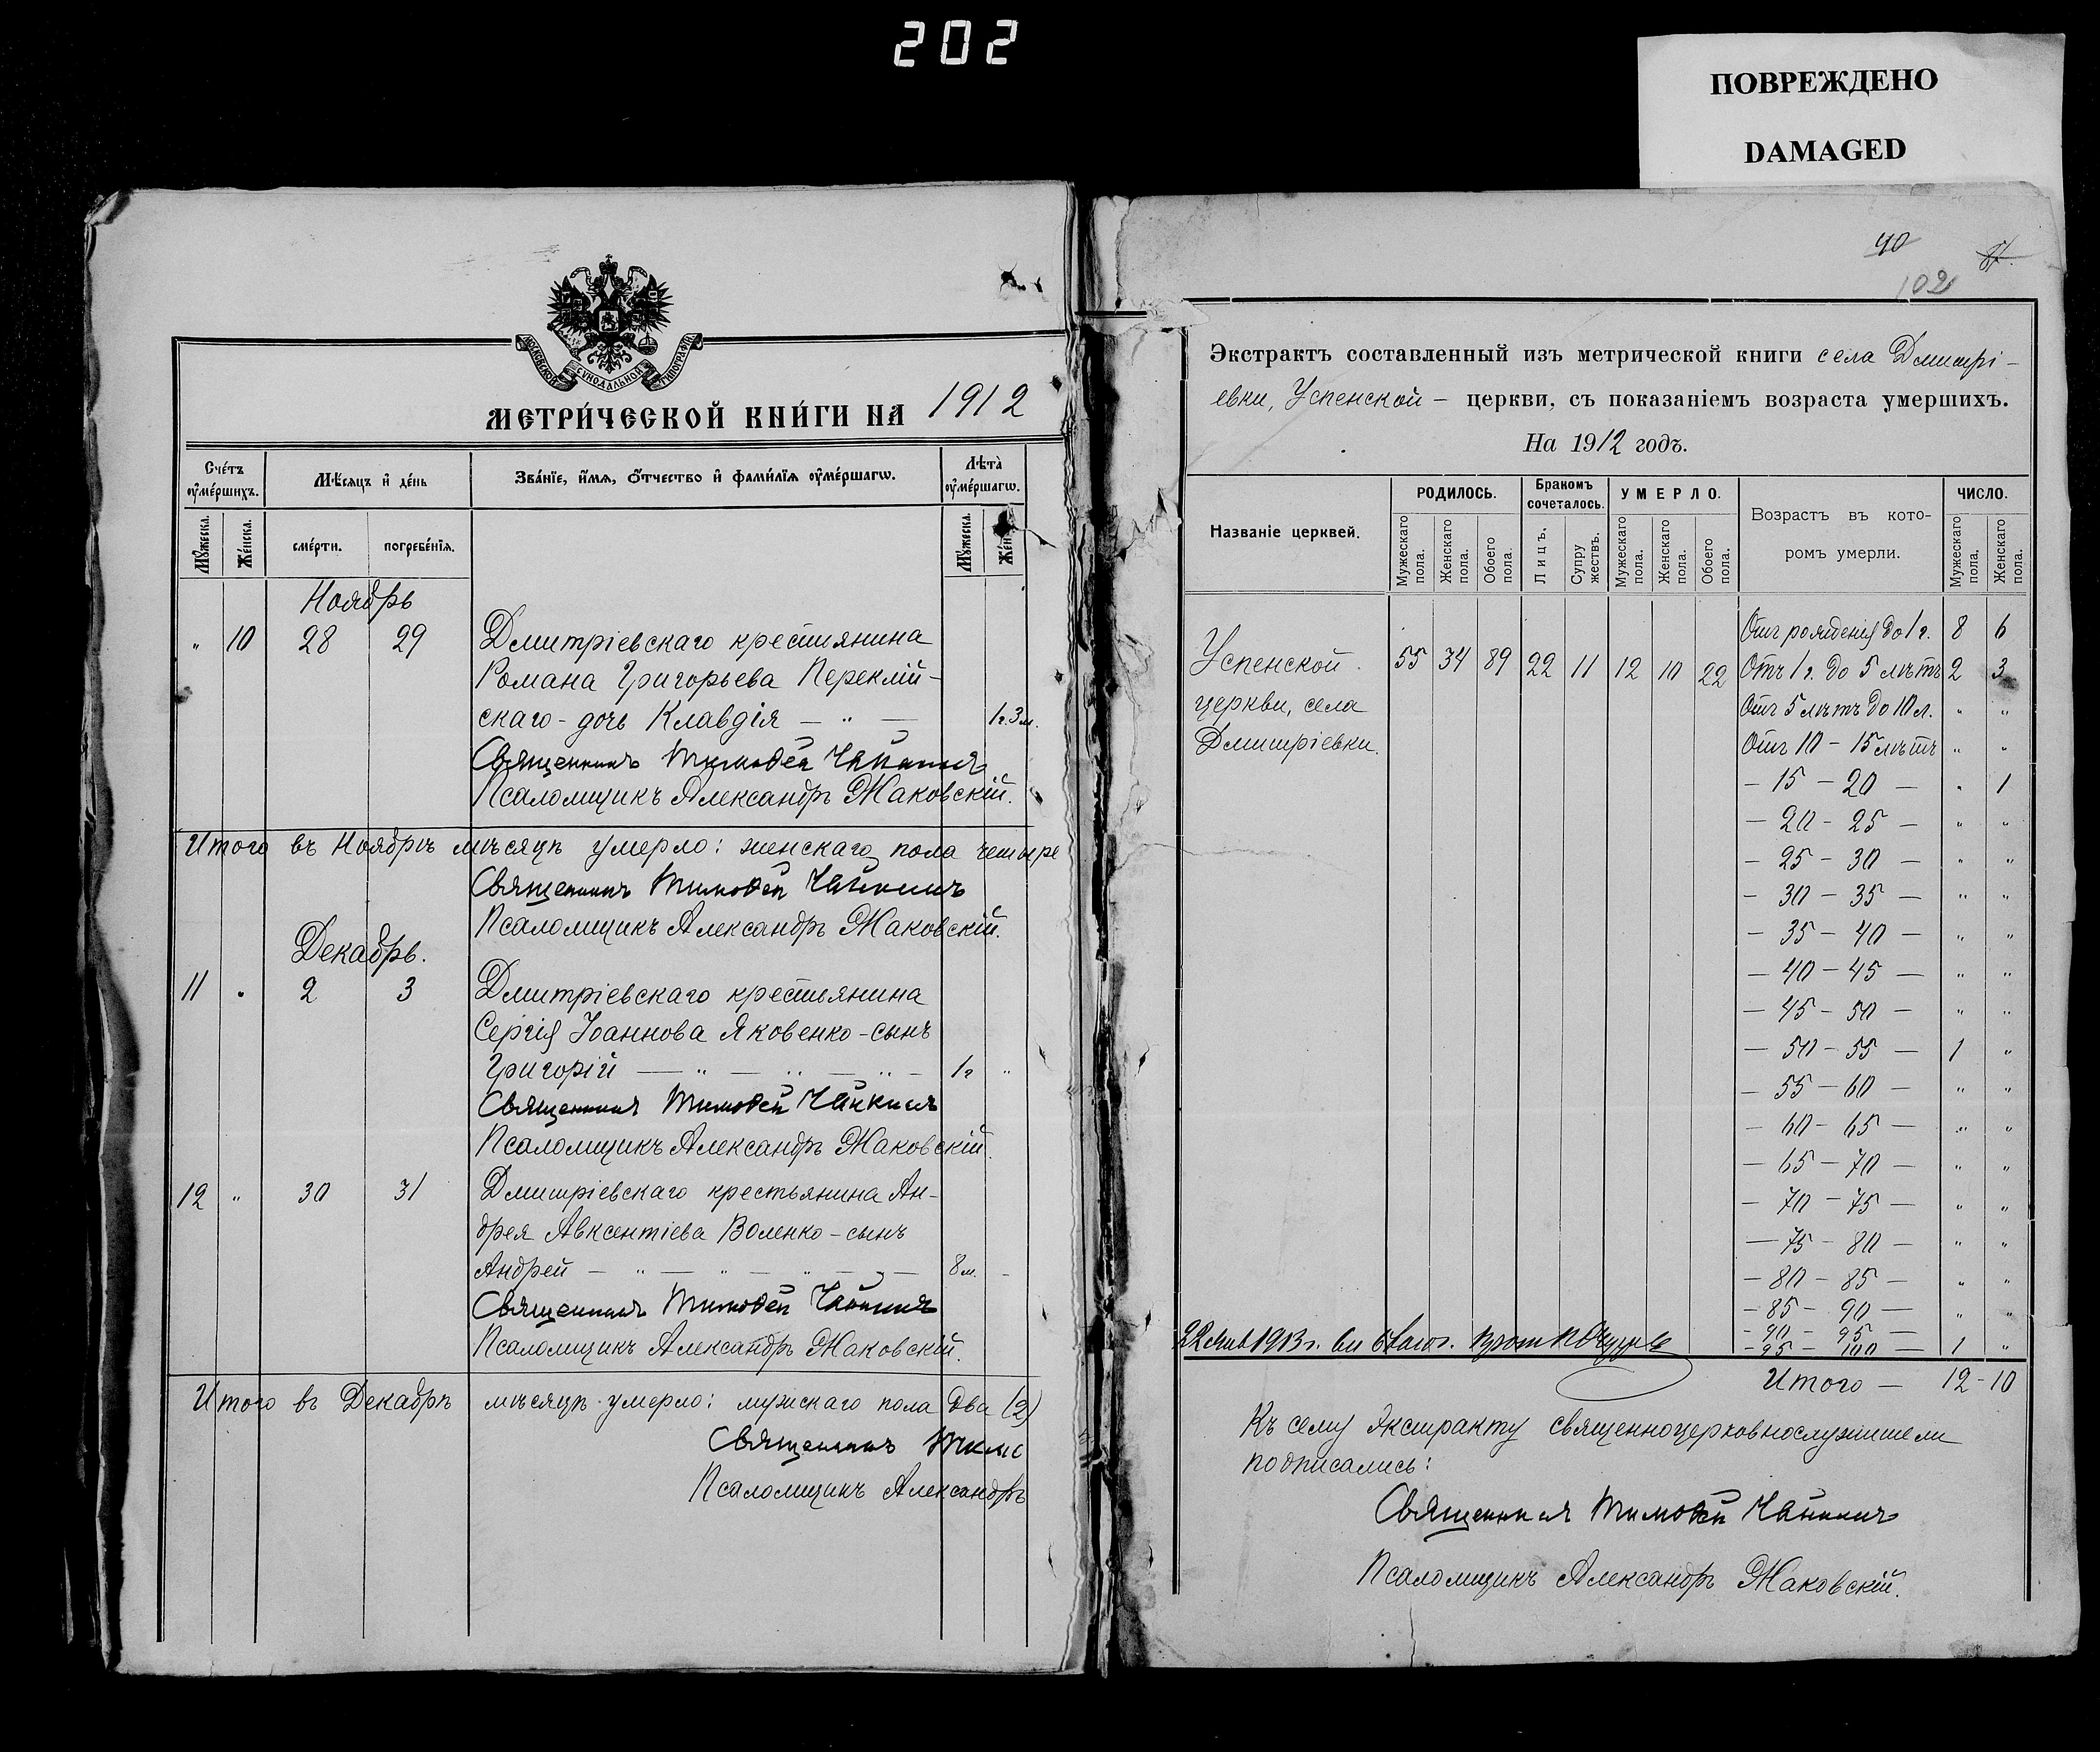 202
ПОВРЕЖДЕНО
DAMAGED
МОСКОВСКОЙ СѴНОДАЛЬНОЙ ТИПОГРАФІИ
МЕТРИ́ЧЕСКОЙ КНИ́ГИ НА 1912
Сче́тъ ᲂу҆ме́ршихъ.
Мѣ́сяцъ и҆ де́нь
Зва́нїе, и҆́мѧ, ѻ҆́тчество и҆ фами́лїѧ ᲂу҆ме́ршагѡ.
Лѣта̀ ᲂу҆ме́ршагѡ.
Мꙋ́жеска.
Же́нска.
сме́рти.
погребе́нїѧ.
Мꙋ́жеска.
Же́н
Ноябрь
" 10 28 29 Дмитріевскаго крестьянина
Романа Григорьева Переклій-
скаго - дочь Клавдія — " — 1г. 3м.
Священникъ Тимофей Чайкинъ
Псаломщикъ Александръ Жаковскій.
Итого въ Ноябрѣ мѣсяцѣ умерло: женскаго пола четыре
Священникъ Тимофей Чайкинъ
Псаломщикъ Александръ Жаковскій.
Декабрь.
11 " 2 3 Дмитріевскаго крестьянина
Сергія Іоаннова Яковенко - сынъ
Григорій — " — " — " — 1г "
Священникъ Тимофей Чайкинъ
Псаломщикъ Александръ Жаковскій.
12 " 30 31 Дмитріевскаго крестьянина Ан-
дрея Авксентіева Воленко - сынъ
Андрей — " — " — " — " — 8м. -
Священникъ Тимофей Чайкинъ
Псаломщикъ Александръ Жаковскій.
Итого въ Декабрѣ мѣсяцѣ умерло: мужскаго пола два (2)
Священникъ Тимо
Псаломщикъ Александръ
90
102
Экстрактъ составленный изъ метрической книги села Дмитрі-
евки, Успенской - церкви, съ показаніемъ возраста умершихъ.
На 1912 годъ.
Названіе церквей.
РОДИЛОСЬ.
Бракомъ сочеталось.
УМЕРЛО.
Возрастъ въ кото-
ромъ умерли.
ЧИСЛО.
Мужескаго пола.
Женскаго пола.
Обоего пола.
Лицъ.
Супружествъ.
Мужескаго пола.
Женскаго пола.
Обоего пола.
Мужескаго пола.
Женскаго пола.
Успенской 55 34 89 22 11 12 10 22
церкви, села
Дмитріевки.
Отъ рожденія до 1 г. 8 6
Отъ 1 г. до 5 лѣтъ 2 3
Отъ 5 лѣтъ до 10 л. " "
Отъ 10 - 15 лѣтъ " "
- 15 - 20 - " 1
- 20 - 25 - " "
- 25 - 30 - " "
- 30 - 35 - " "
- 35 - 40 - " "
- 40 - 45 - " "
- 45 - 50 - " "
- 50 - 55 - 1 "
- 55 - 60 - " "
- 60 - 65 - " "
- 65 - 70 - " "
- 70 - 75 - " "
- 75 - 80 - " "
- 80 - 85 - " "
- 85 - 90 - " "
- 90 - 95 -
- 95 - 100 - 1 "
1913 г.
Итого — 12 - 10
Къ сему экстракту священноцерковнослужители
подписались:
Священникъ Тимофей Чайкинъ
Псаломщикъ Александръ Жаковскій.